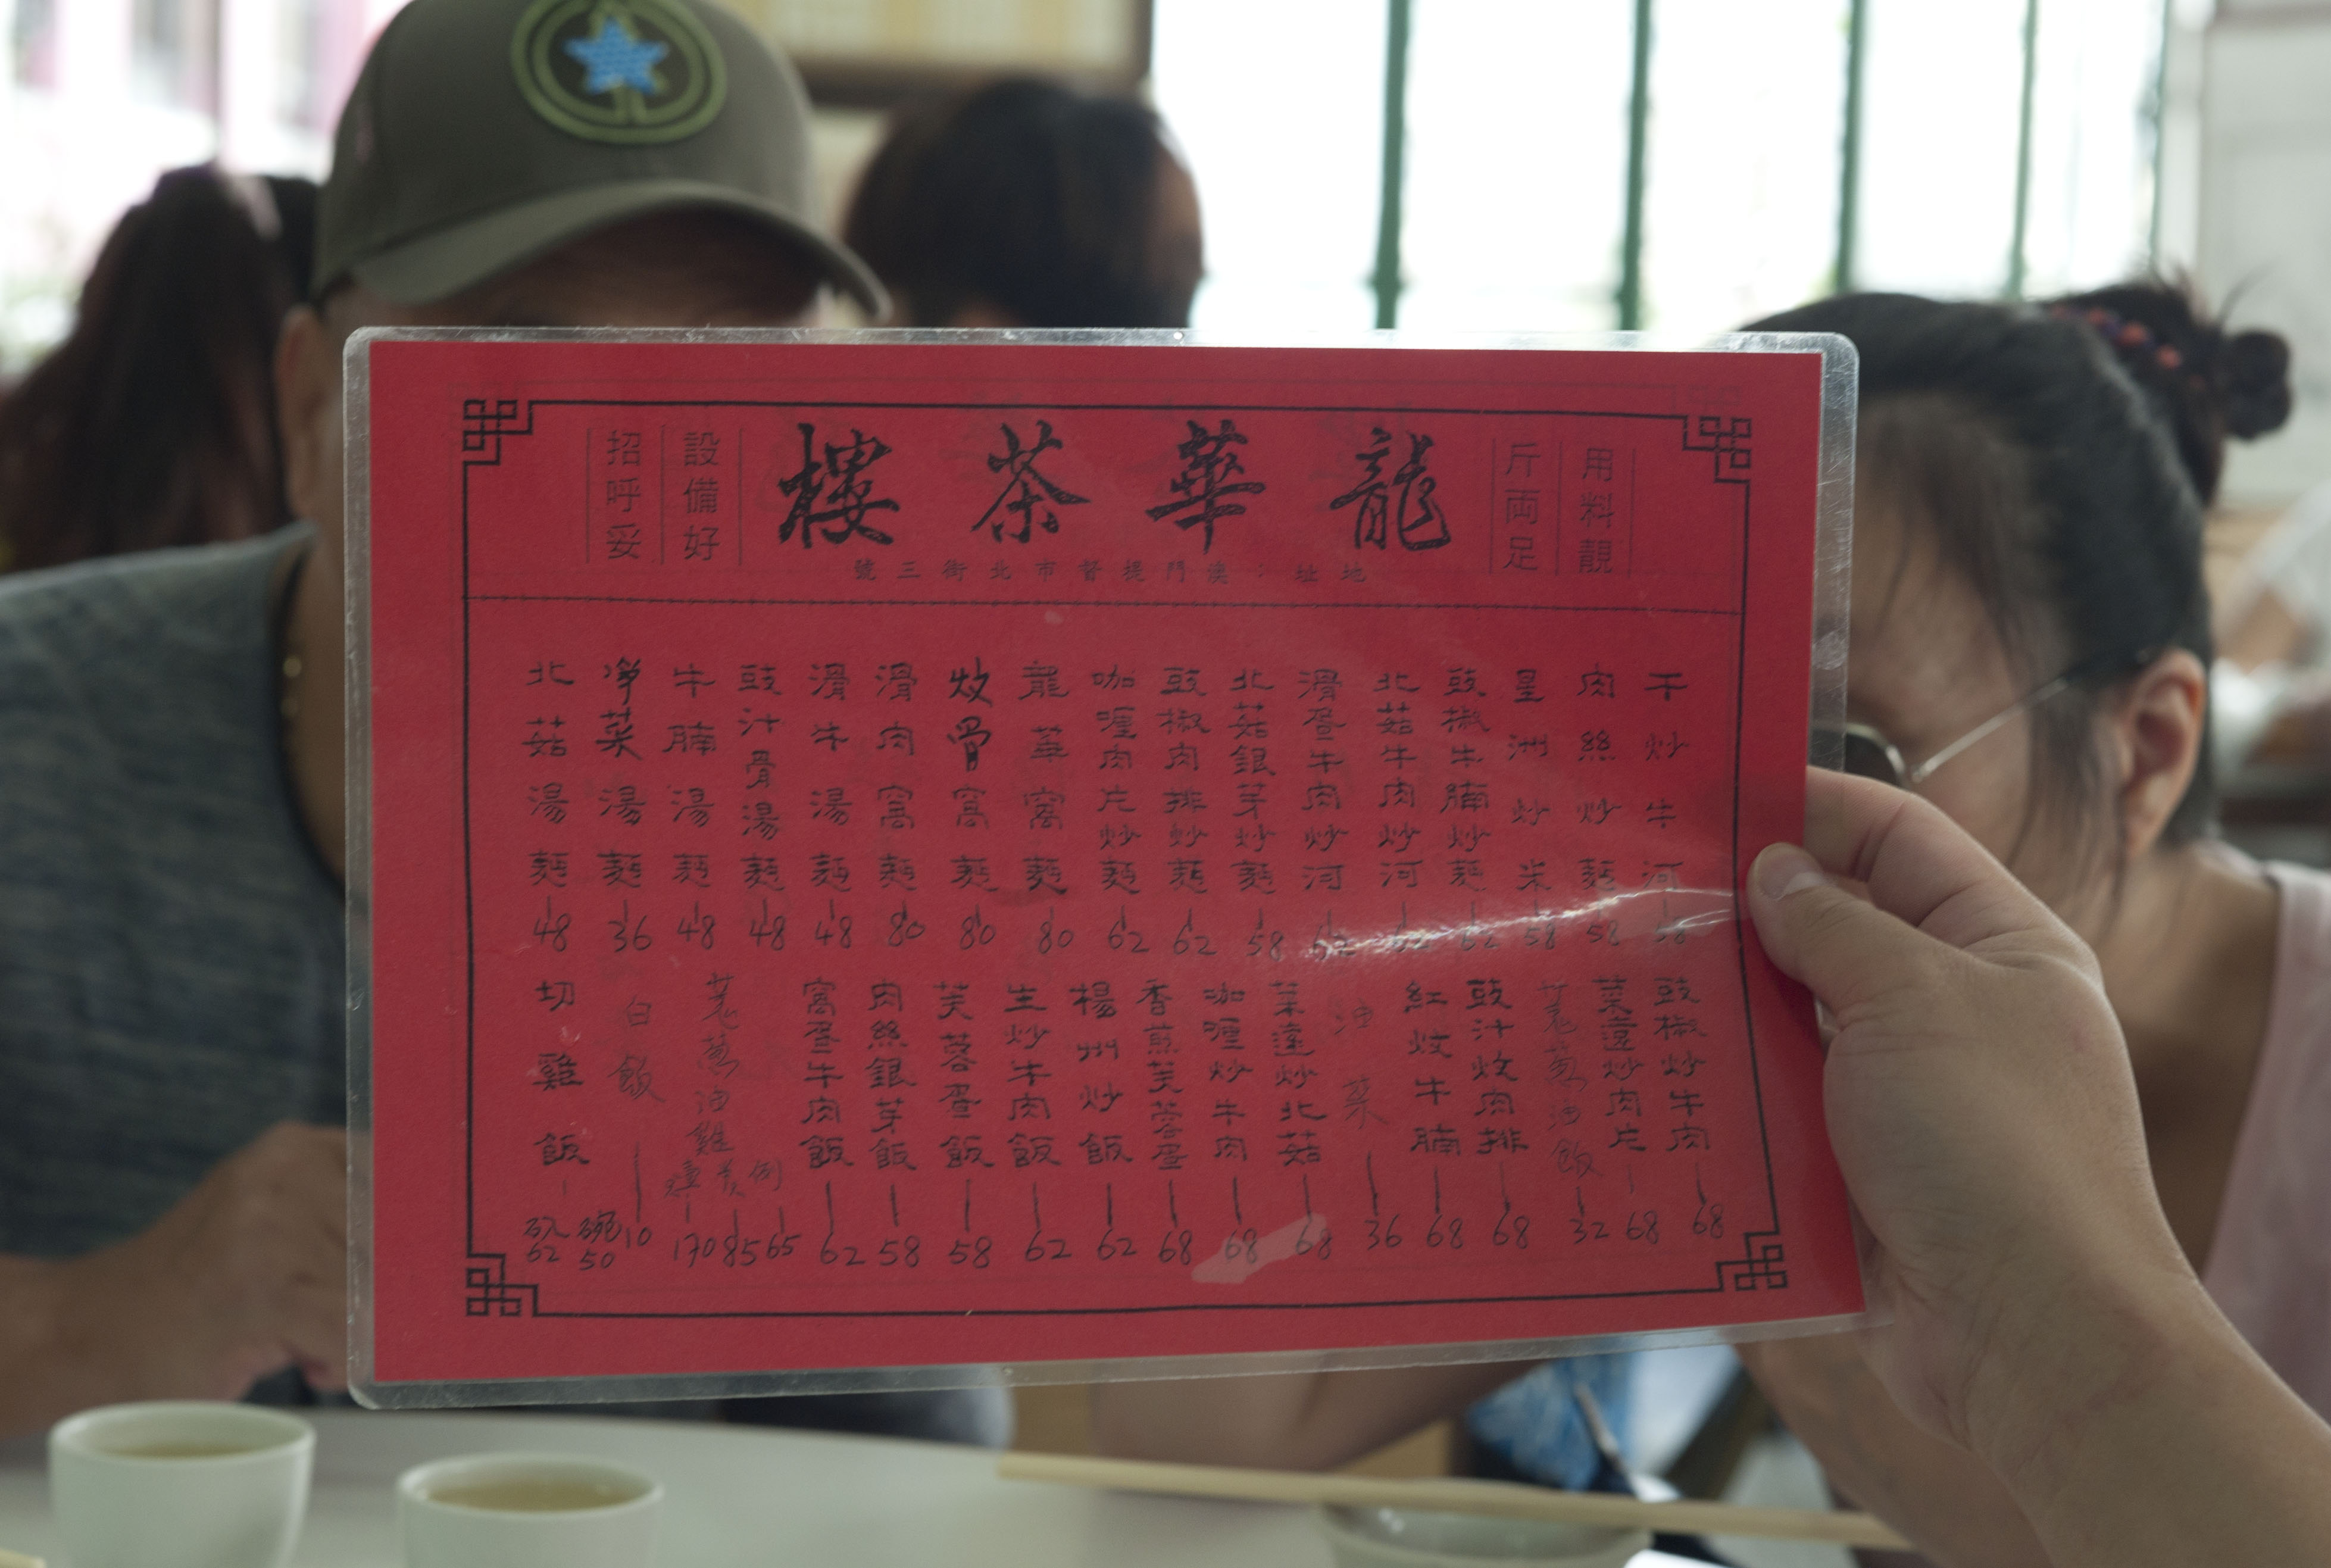 龍華茶樓
用料靚
斤両足
設備好
招呼妥
地址：澳門提督市北街三號
干炒牛河 58
肉絲炒麵 58
星洲炒米 58
豉椒牛腩炒麵 62
北菇牛肉炒河 62
滑蛋牛肉炒河 62
北菇銀芽炒麵 58
豉椒肉排炒麵 62
咖喱肉片炒麵 62
龍華窩麵 80
炆骨窩麵 80
滑肉窩麵 80
滑牛湯麵 48
豉汁骨湯麵 48
牛腩湯麵 48
净菜湯麵 36
北菇湯麵 48
豉椒炒牛肉 68
菜遠炒肉片 68
羌葱油飯 32
豉汁炆肉排 68
紅炆牛腩 68
油菜 36
菜遠炒北菇 68
咖喱炒牛肉 68
香煎芙蓉蛋 68
楊州炒飯 62
生炒牛肉飯 62
芙蓉蛋飯 58
肉絲銀芽飯 58
窩蛋牛肉飯 62
羌葱油雞 例65 85 170
白飯 10
切雞飯 碗50 62